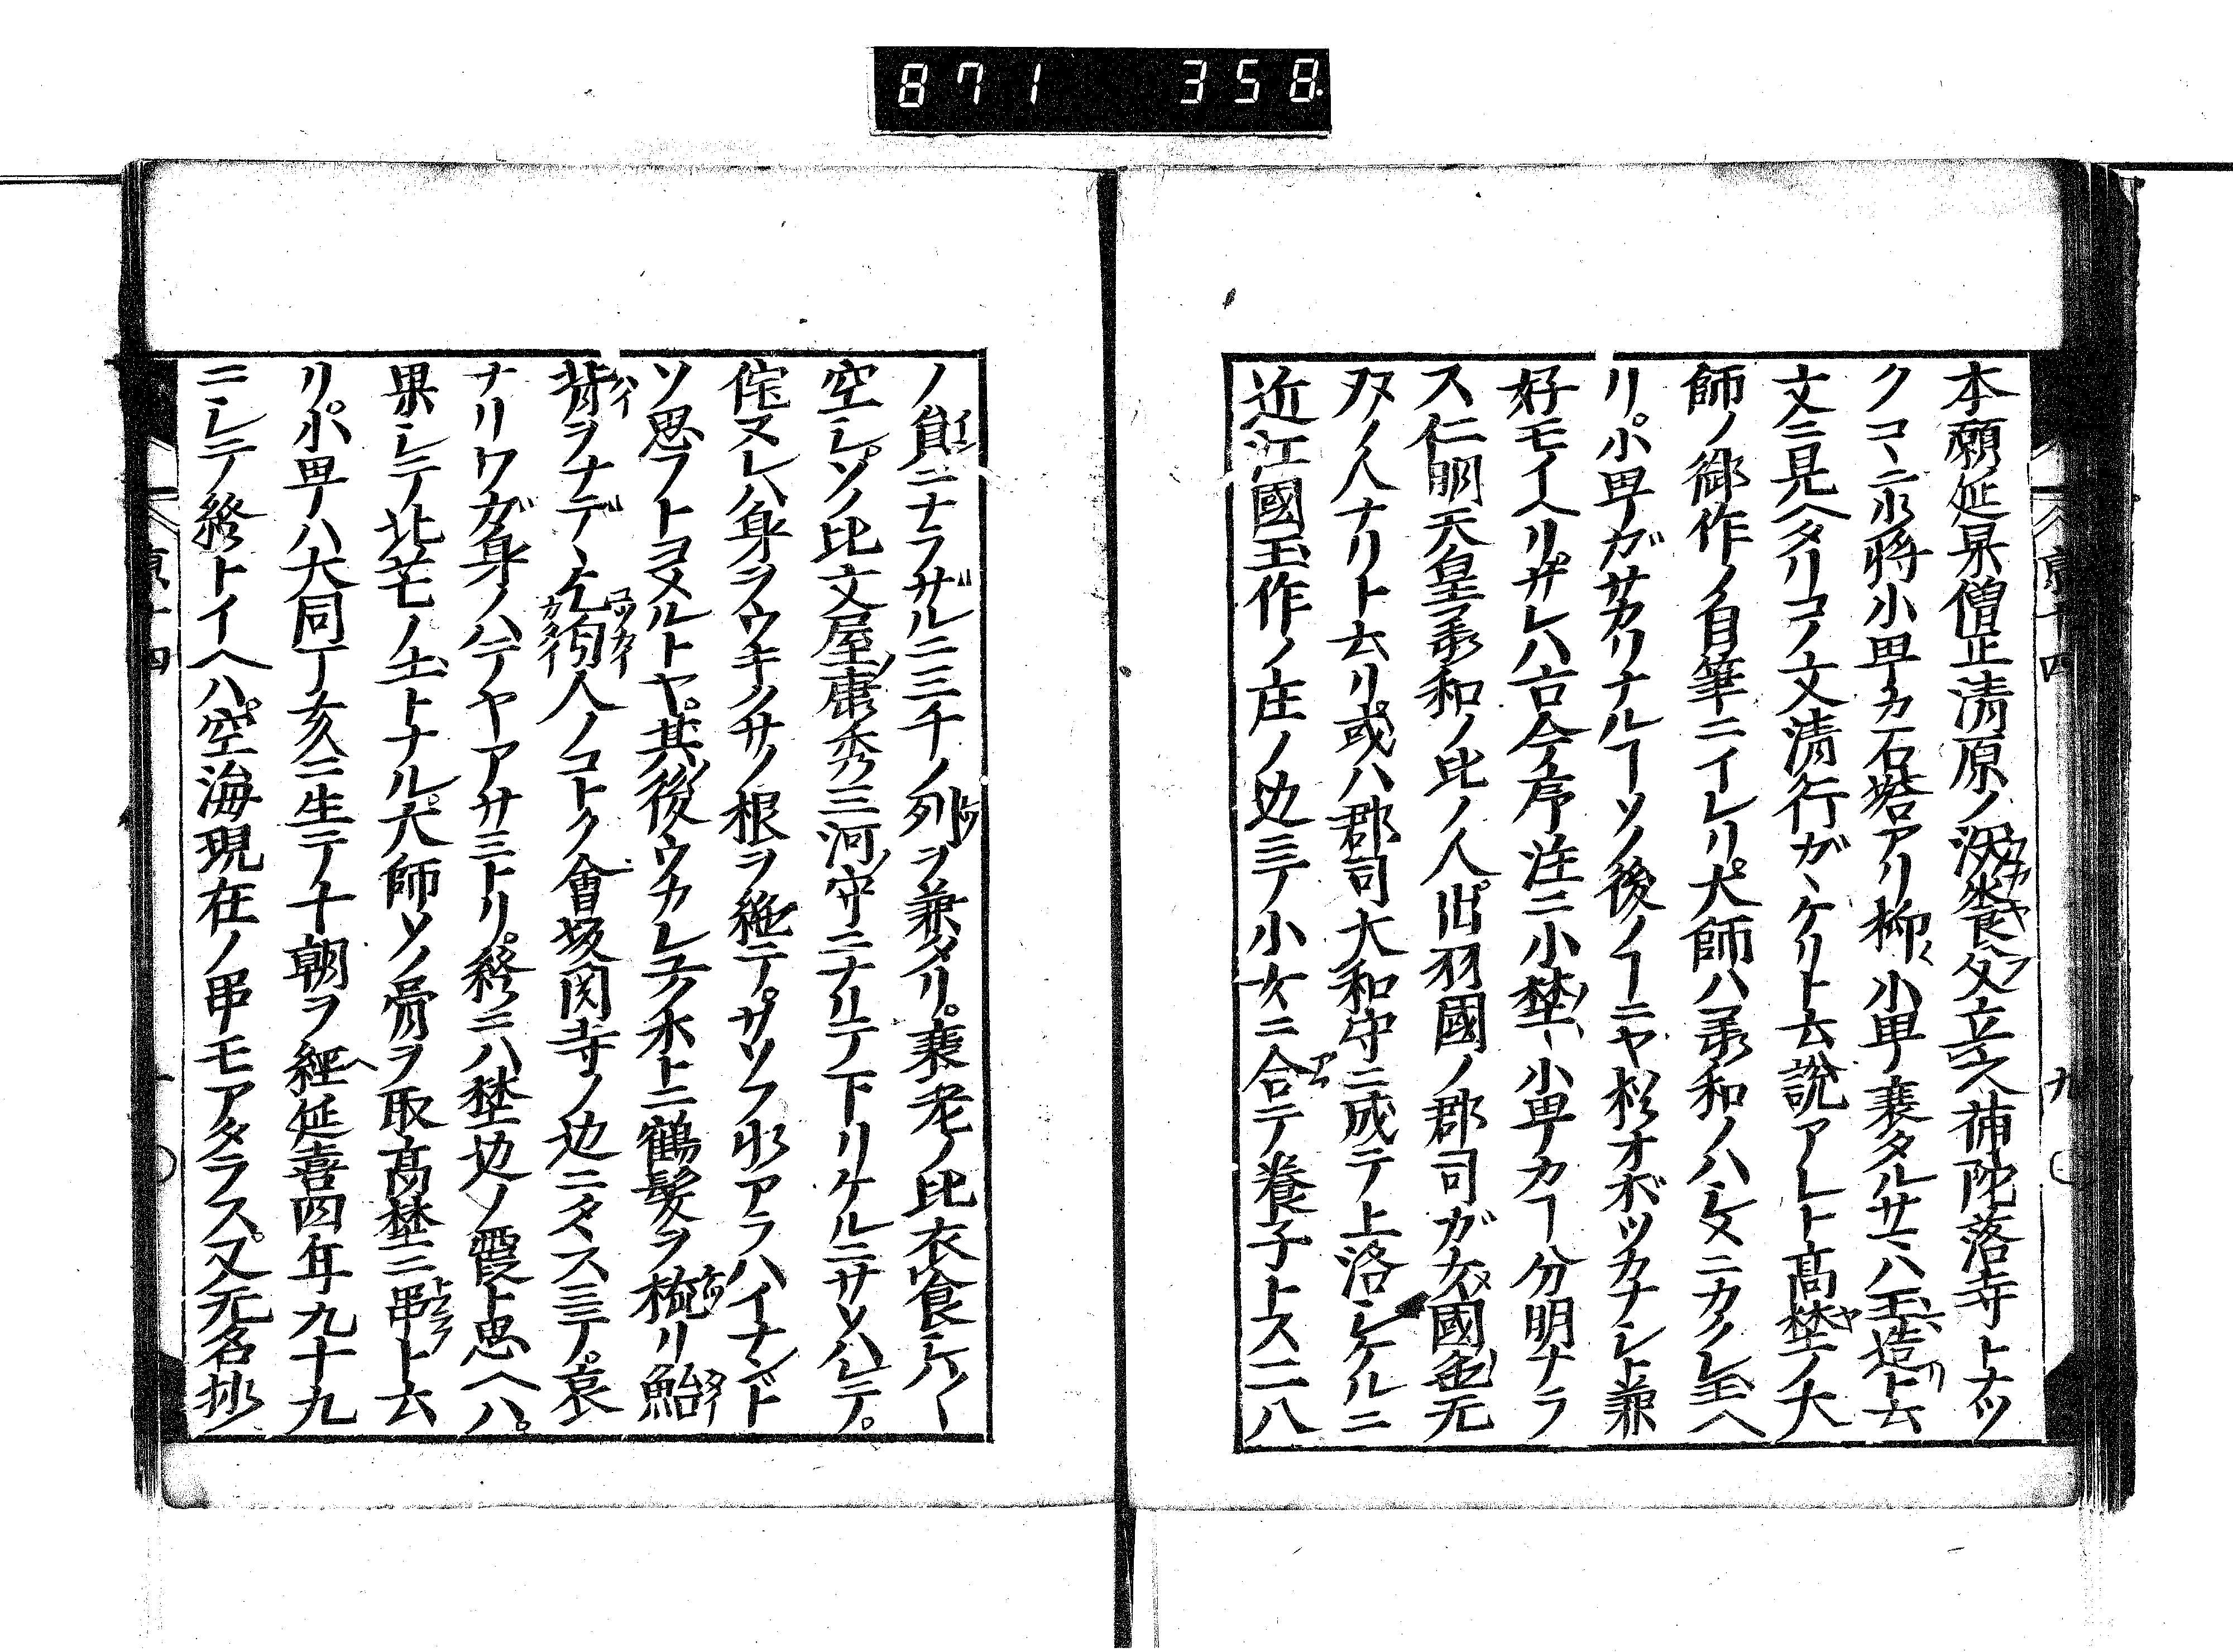 871 358
本願延杲僧正清原ノ深養父立之補陀落寺トナツ
クコヽニ小將小町カ石塔アリ抑〻小町衰タルサマハ玉造ト云
文ニ見ヘタリコノ文清行ガヽケリト云説アレト髙埜ノ大
師ノ御作ノ自筆ニイレリ大師ハ承和ノハシメニカクレ玉ヘ
リ小町ガサカリナルヿソノ後ノヿニヤ杉オボツカナシト兼
好モイヘリサレハ古今序注ニ小埜ヽ小町カヿ分明ナラ
ス仁明天皇承和ノ比ノ人出羽國ノ郡司ガ女國色无
双ノ人ナリト云リ或ハ郡司大和守ニ成テ上洛シケルニ
近江國玉作ノ庄ノ边ニテ小女ニ合テ養子トス二八
ノ㒵ニナラザルニ三千ノ列ヲ兼タリ衰老ノ比衣食
空シソノ比文屋康秀三河守ニナリテ下リケルニサソハレテ
侘ヌレハ身ヲウキクサノ根ヲ絶テサソフ水アラハイナンド
ソ思フトヨメルトヤ其後ウカレ子ノ水トニ鶴髪ヲ梳リ鮐
背ヲナデヽ乞丐人ノコトク會坂関寺ノ边ニタヽスミテ哀
ナリワガ身ノハテヤアサミトリ終ニハ埜边ノ霞ト思ヘハ
果シテ北芒ノ土トナル大師ソノ骨ヲ取髙埜ニ弔ト云
リ小町ハ大同丁亥ニ生テ十朝ヲ經延喜四年九十九
ニシテ終トイヘハ空海現在ノ弔モアタラス又无名抄
京十四 九
京十四